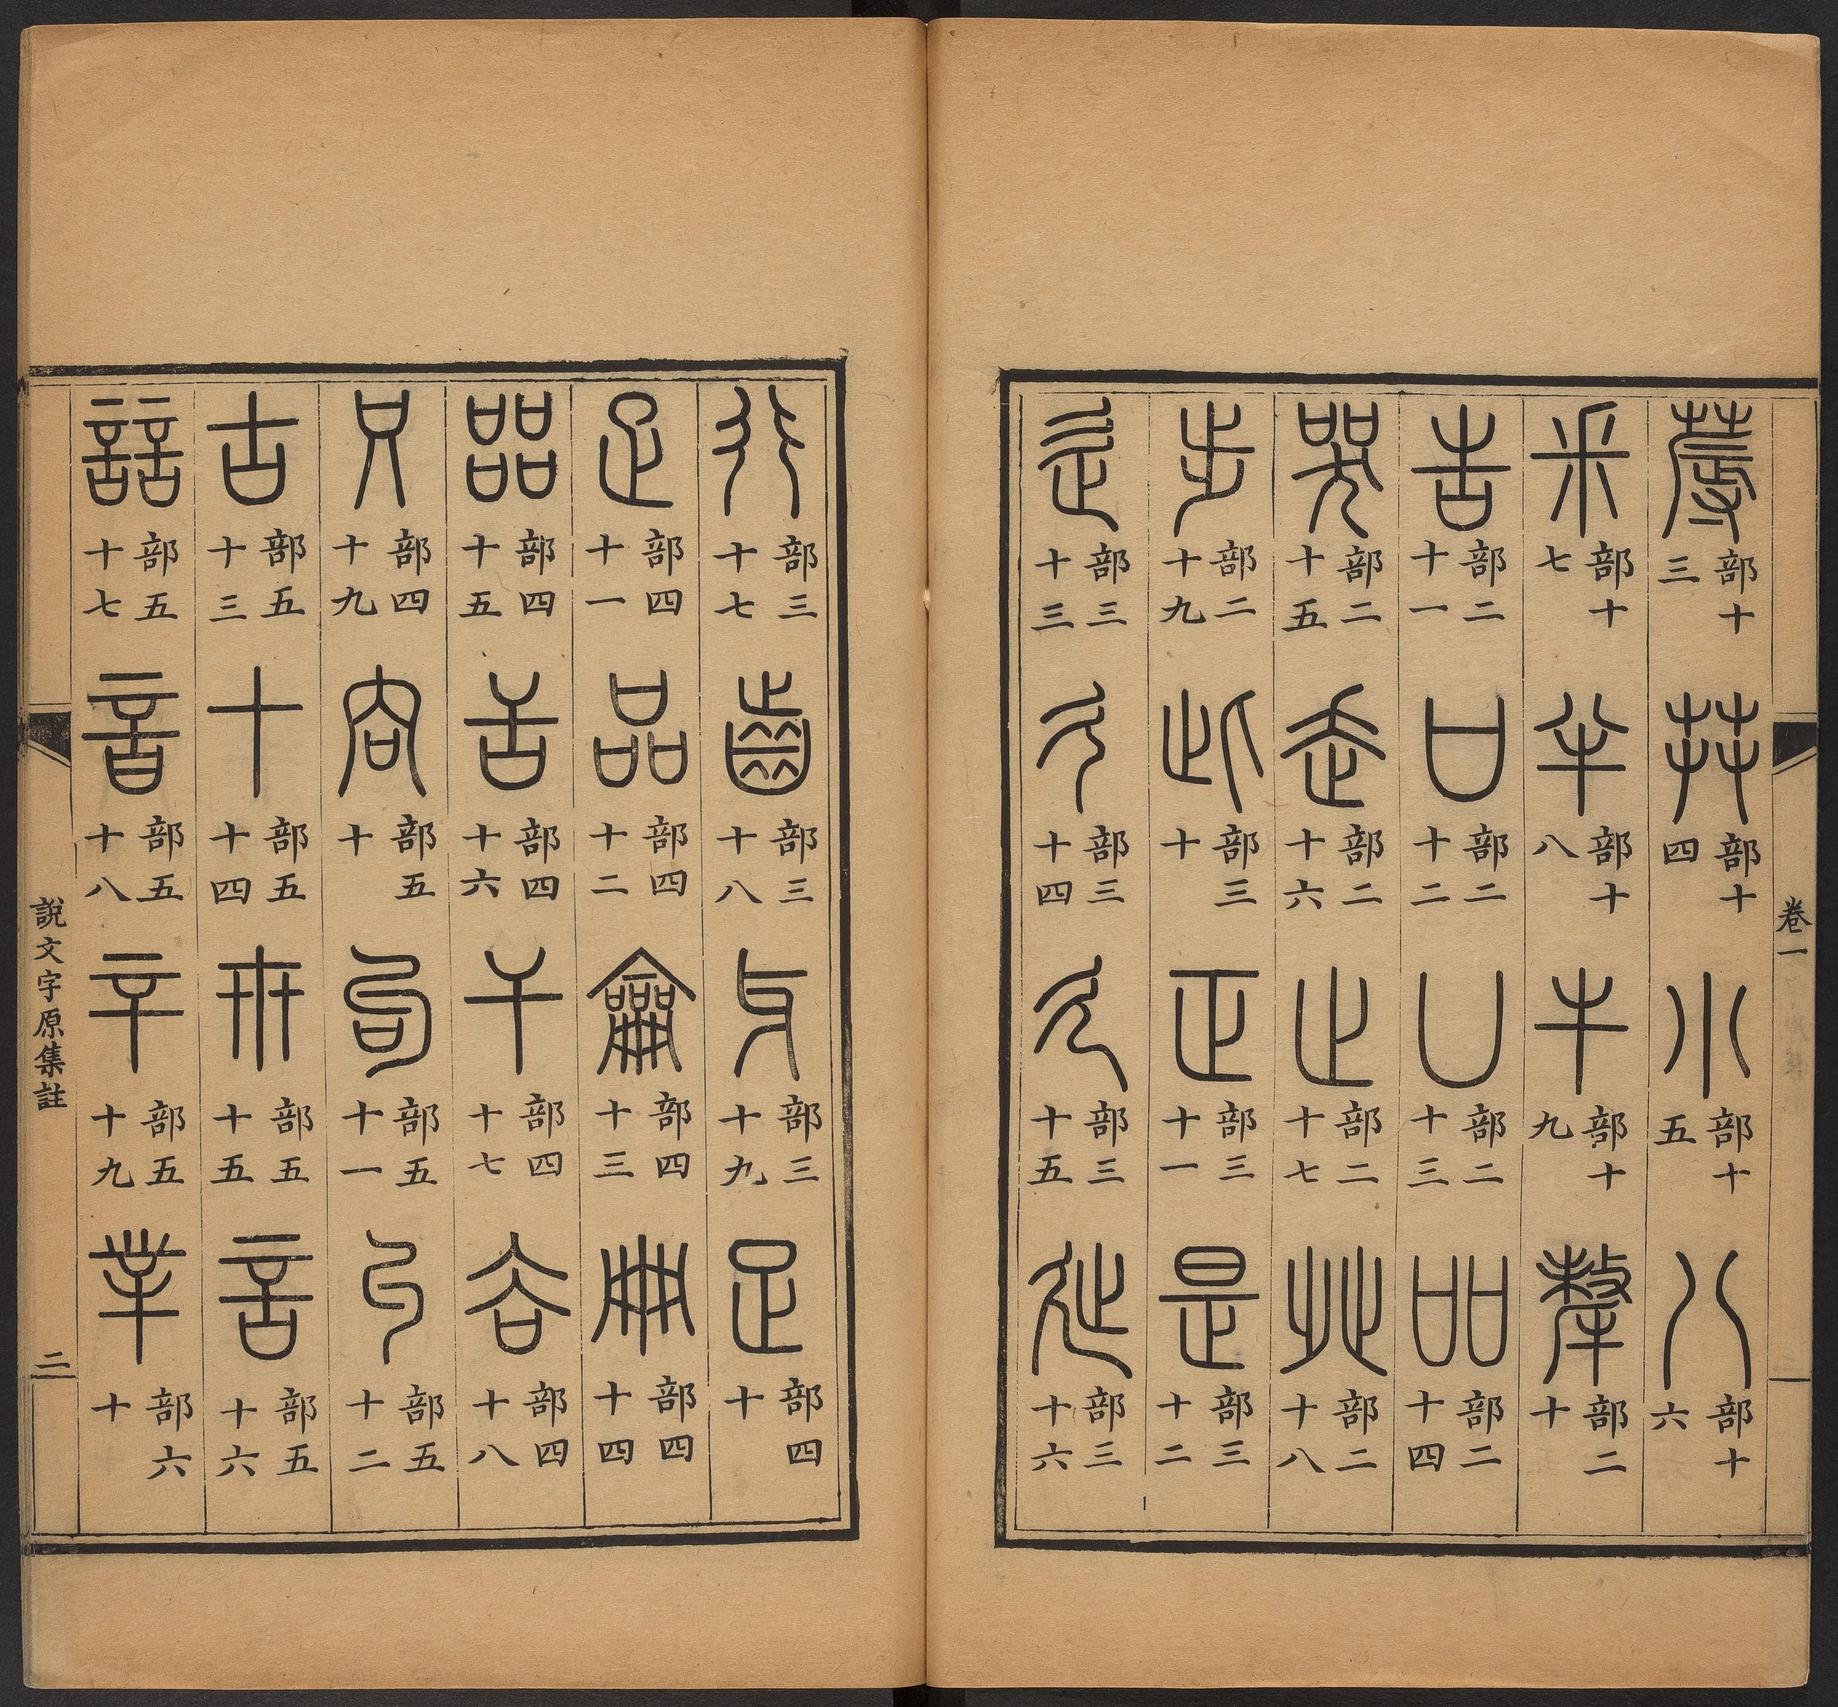 卷一
蓐 部十三 茻 部十四 小 部十五 八 部十六
釆 部十七 半 部十八 牛 部十九 犛 部二十
告 部二十一 口 部二十二 凵 部二十三 吅 部二十四
哭 部二十五 走 部二十六 止 部二十七 癶 部二十八
步 部二十九 此 部三十 正 部三十一 是 部三十二
辵 部三十三 彳 部三十四 廴 部三十五 㢟 部三十六
行 部三十七 齒 部三十八 牙 部三十九 足 部四十
疋 部四十一 品 部四十二 龠 部四十三 冊 部四十四
㗊 部四十五 舌 部四十六 干 部四十七 𧮫 部四十八
只 部四十九 㕯 部五十 句 部五十一 丩 部五十二
古 部五十三 十 部五十四 卅 部五十五 言 部五十六
誩 部五十七 音 部五十八 䇂 部五十九 丵 部六十
說文字原集註
二